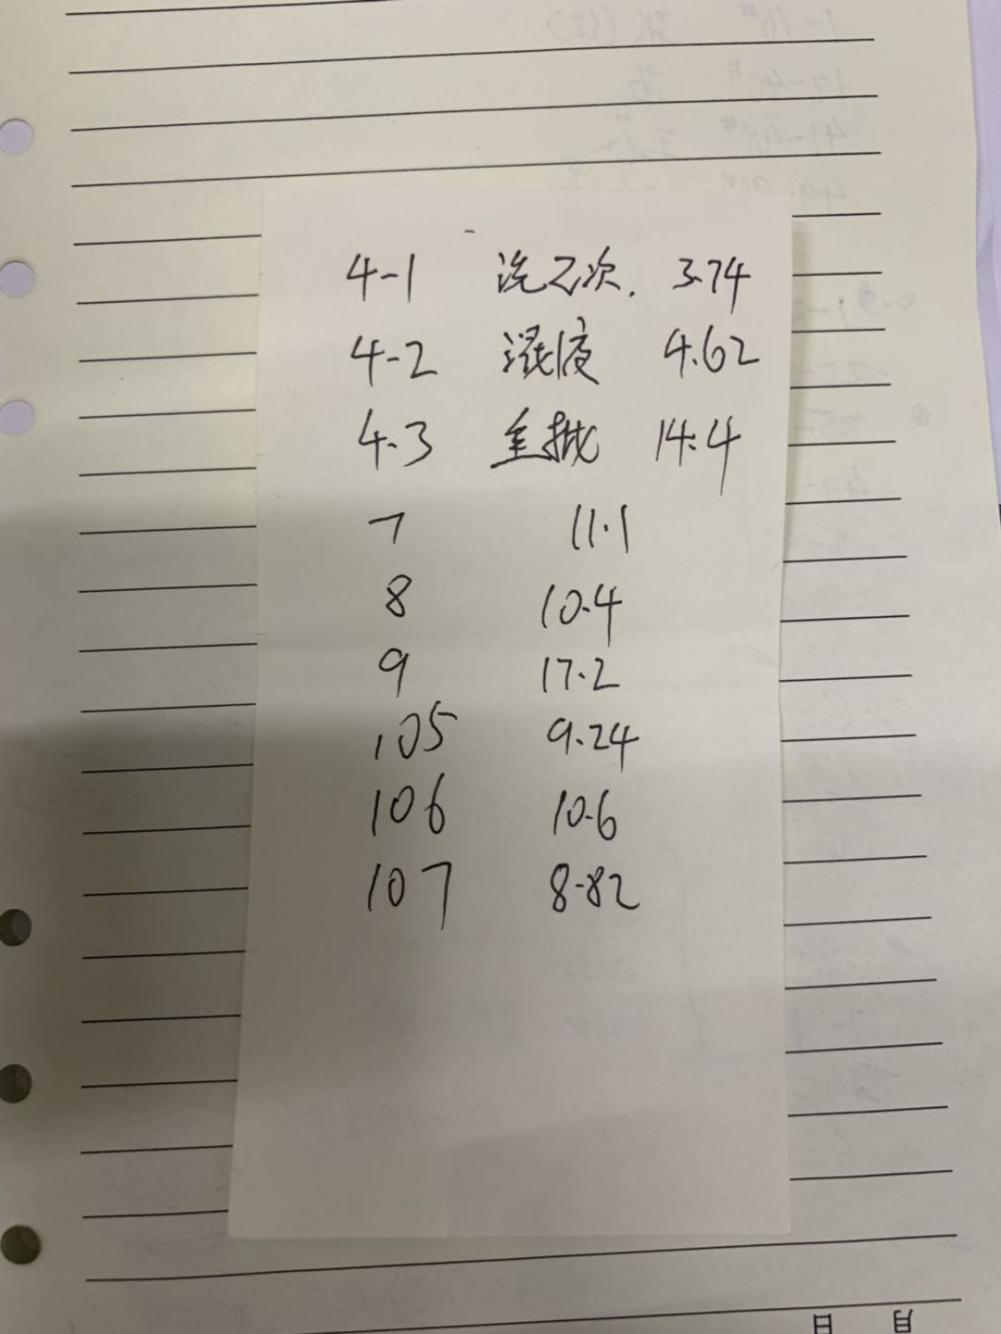 4-1 洗2次. 3.74
4-2 混液 4.62
4-3 全批 14.4
7 11.1
8 10.4
9 17.2
105 9.24
106 10.6
107 8.82
日 月